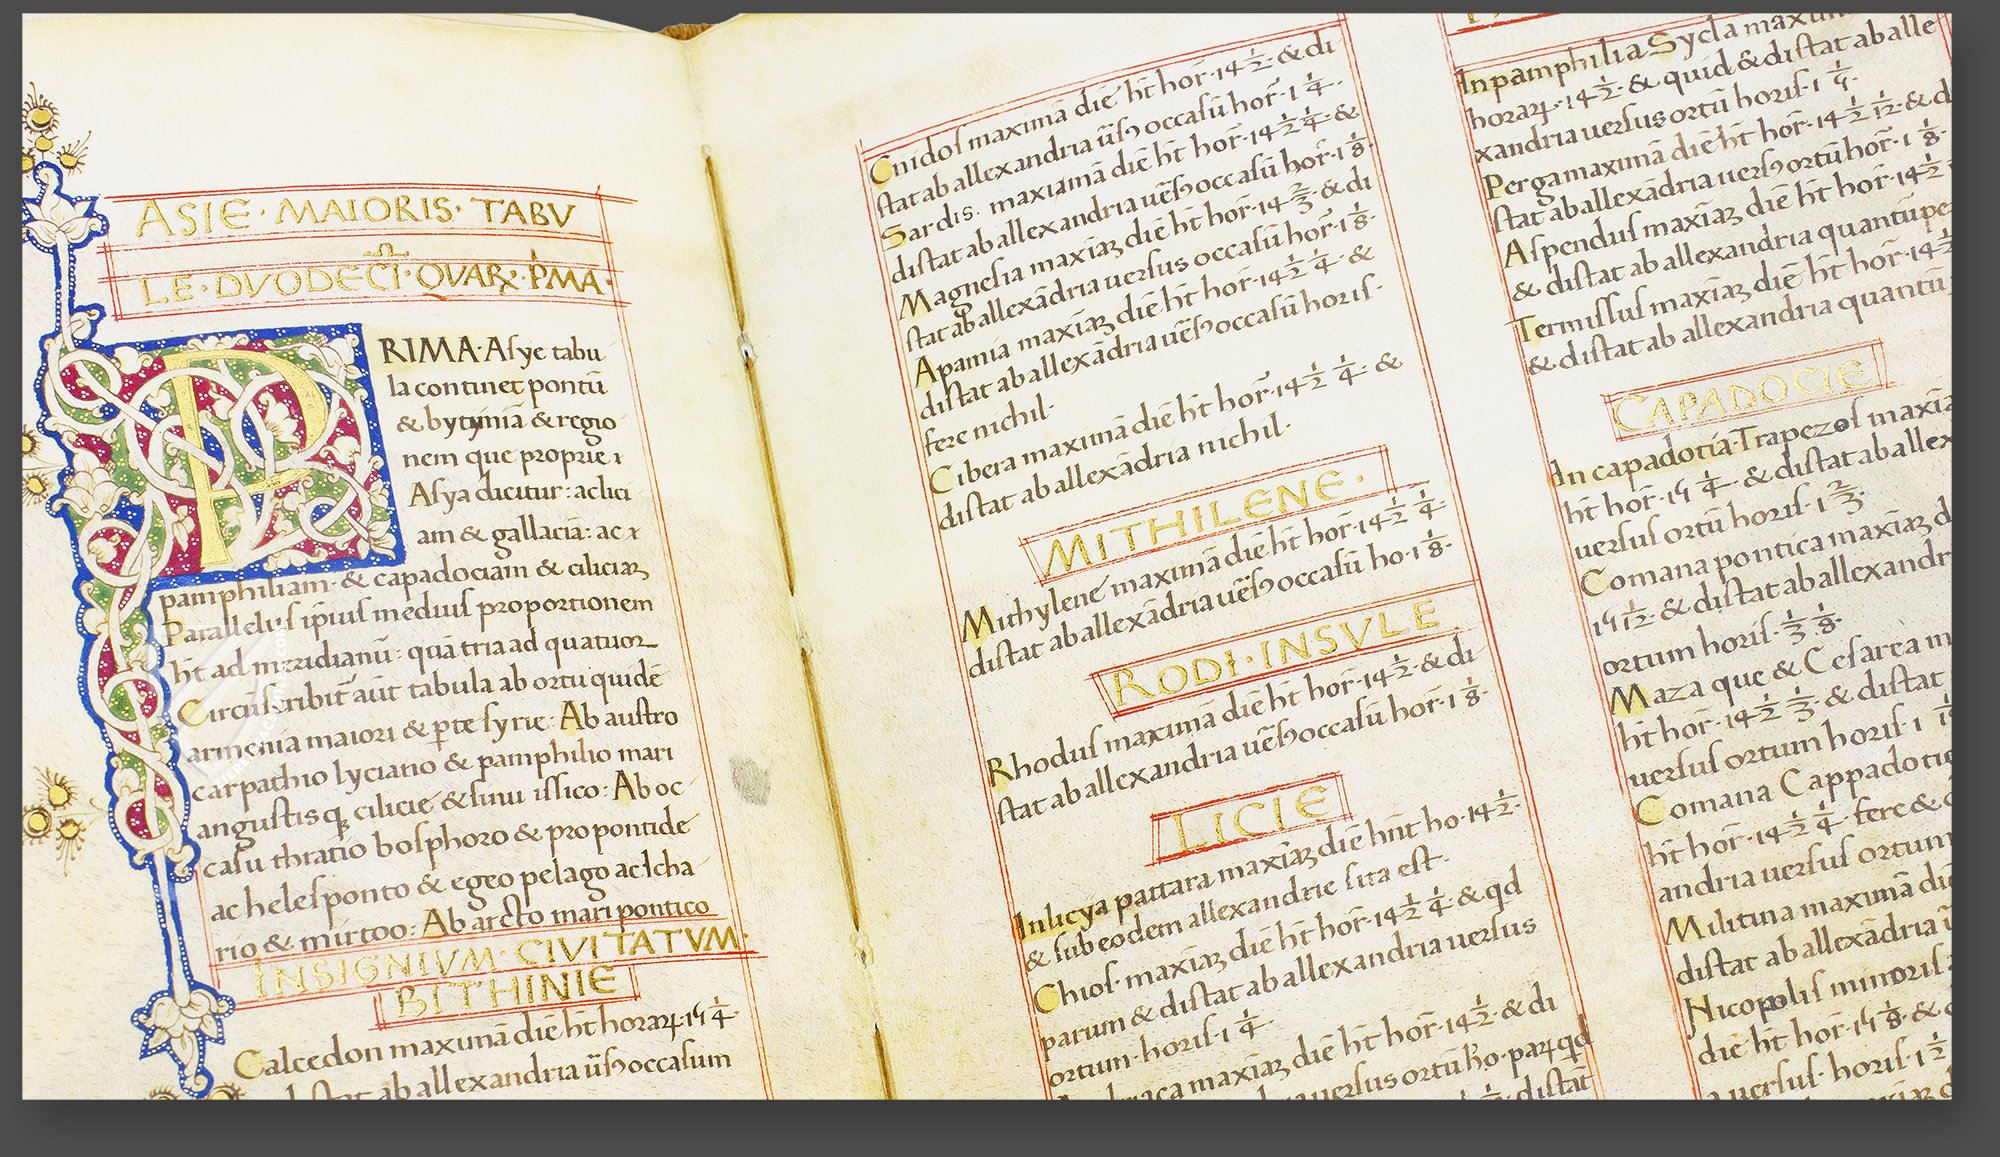 ASIE · MAIORIS · TABV
LE · DVODECI · QVARꝜ · PMA ·
PRIMA · Asye tabu
la continet pontū
& bytiniā & regio
nem que proprie
Asya dicitur : ac lici
am & gallaciā : ac
pamphiliam · & capadociam & ciliciaꝫ
Parallelus ipius medius proportionem
ht ad meridianū : quā tria ad quatuor
Circūscribit aūt tabula ab ortu quidē
armenia maiori & pte syrie : Ab austro
carpathio lyciano & pamphilio mari
angustisqꝫ cilicie & sinu issico : Ab oc
casu thratio bosphoro & propontide
ac helesponto & egeo pelago ac Icha
rio & mirtoo : Ab arcto mari pontico
INSIGNIVM · CIVITATVM ·
BITHINIE
Calcedon maximā diē ht horaꝝ · 15 1/4 ·
ab allexandria ūsꝯ occasum
Cnidos maximā diē ht hor · 14 1/2 · & di
stat ab allexandria ūsꝯ occasū hor · 1 1/4 ·
Sardis · maximā diē ht hor · 14 1/2 1/4 · &
distat ab allexandria uēsꝯ occasū hor · 1 1/8 ·
Magnesia maxiaꝫ diē ht hor · 14 2/3 · & di
stat ab allexādria uersus occasū hor · 1 1/8 ·
Apamia maxiaꝫ diē ht hor · 14 1/2 1/4 · &
distat ab allexādria uēsꝯ occasū horis ·
fere nichil ·
Cibera maximā diē ht hor · 14 1/2 1/4 · &
distat ab allexādria nichil ·
MITHILENE ·
Mithylene maximā diē ht hor · 14 1/2 1/4 ·
distat ab allexādria uēsꝯ occasū ho · 1 1/8 ·
RODI · INSVLE
Rhodus maximā diē ht hor · 14 1/2 · & di
stat ab allexandria uēsꝯ occasū hor · 1 1/8 ·
LICIE
In licya pattara maxiaꝫ diē hnt ho · 14 1/2 ·
& sub eodem allexandrie sita est ·
Chios · maxiaꝫ diē ht hor · 14 1/2 1/4 · & qd
parum & distat ab allexandria uersus
ortum · horis · 1 1/4 ·
maxiaꝫ diē ht hor · 14 1/2 · & di
uersus ortū ho · paꝝ qd
1/2 · distat
In pamphilia Sycla maxim
horaꝝ · 14 1/2 · & quid & distat ab alle
xandria uersus ortū horis · 1 1/4 ·
Perga maximā diē ht hor · 14 1/2 1/12 · & d
stat ab allexādria uersꝯ ortū hor · 1 1/8 ·
Aspendus maxiaꝫ diē ht hor · 14 1/2
& distat ab allexandria quantū pe
Termissus maxiaꝫ diē ht hor · 14 1/2
& distat ab allexandria quantū
CAPADOCIE
In capadotia · Trapezos maxia
ht hor · 15 1/4 · & distat ab allex
uersus ortū horis · 1 2/3 ·
Comana pontica maxiaꝫ d
15 1/12 · & distat ab allexandr
ortum horis · 1/3 1/8 ·
Maza que & Cesarea m
ht hor · 14 1/2 1/3 · & distat
uersus ortum horis · 1
Comana Cappadotie
ht hor · 14 1/2 1/4 · fere &
andria uersus ortum
Militina maximā die
distat ab allexādria
Nicopolis minoris
diē ht hor · 15 1/8 · &
uersus · horis · 1 1/2